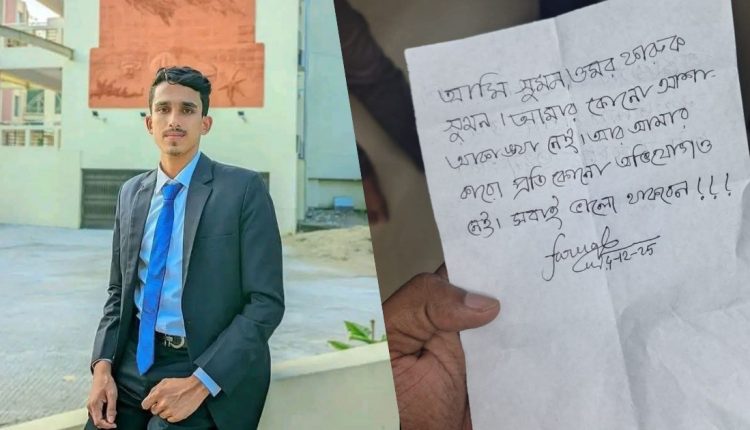 আমি সুমন, ওমর ফারুক
সুমন। আমার কোনো আশা-
আকাঙ্খা নেই। আর আমার
কারো প্রতি কোনো অভিযোগও
নেই। সবাই ভালো থাকবেন!!!
Farruk
4-12-25